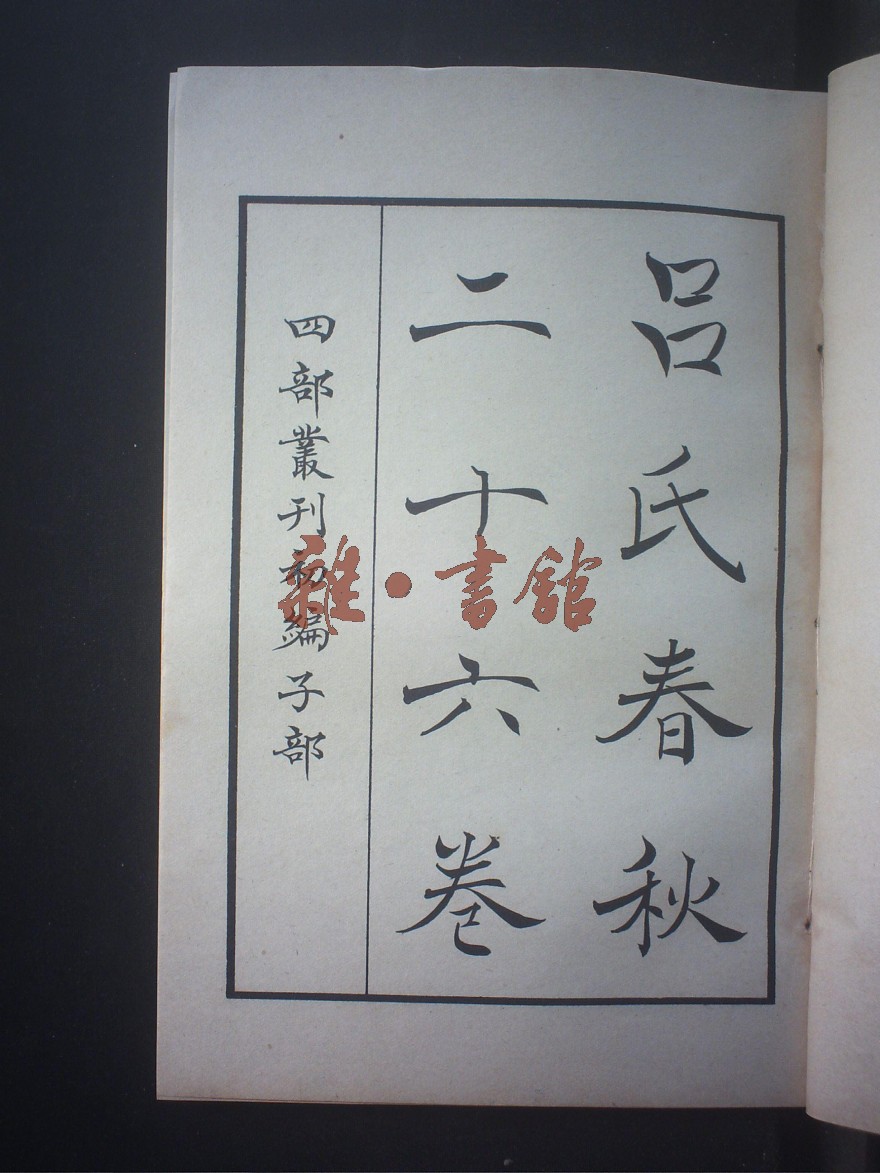 呂氏春秋
二十六卷
四部叢刊初編子部
雜·書館